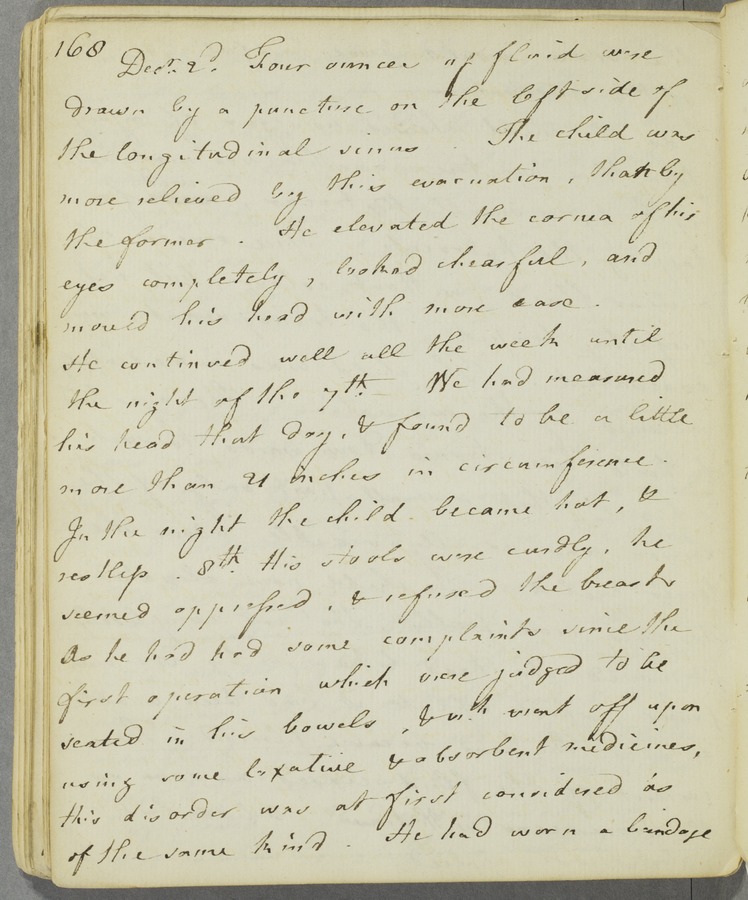 168
Decr. 2d. Four ounces of fluid were
drawn by a puncture on the left side of
the longitudinal sinus. The child was
more relieved by this evacuation, than by
the former. He elevated the cornea of his
eyes completely, looked chearful, and
moved his head with more ease.
He continued well all the week until
the night of the 7th. We had measured
his head that day, & found to be a little
more than 21 inches in circumference.
In the night the child became hot, &
restless. 8th. His stools were curdly, he
seemed oppressed, & refused the breast
As he had had some complaints since the
first operation which were judged to be
seated in his bowels, & wch. went off upon
using some laxative & absorbent medicines,
this disorder was at first considered as
of the same kind. He had worn a bandage